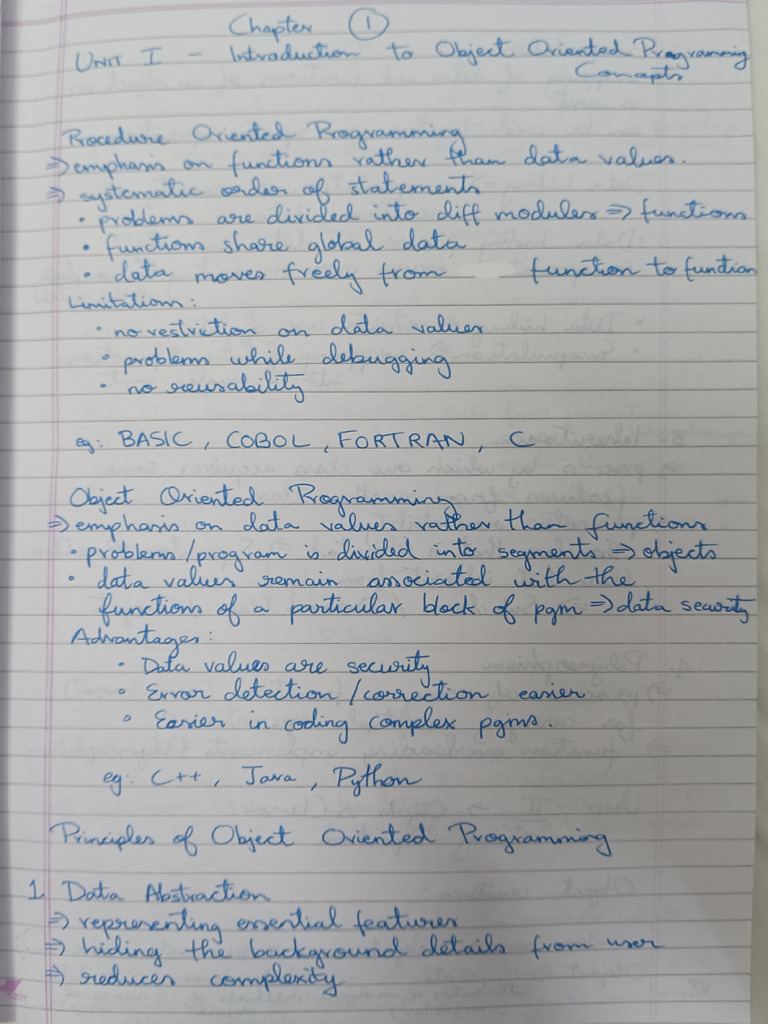 Chapter 1
UNIT I - Introduction to Object Oriented Programming
Concepts
Procedure Oriented Programming
⇒ emphasis on functions rather than data values.
⇒ systematic order of statements
• problems are divided into diff modules ⇒ functions
• functions share global data
• data moves freely from function to function
Limitations:
• no restriction on data values
• problems while debugging
• no reusability
eg: BASIC, COBOL, FORTRAN, C
Object Oriented Programming
⇒ emphasis on data values rather than functions
• problems/program is divided into segments ⇒ objects
• data values remain associated with the
functions of a particular block of pgm ⇒ data security
Advantages:
• Data values are security
• Error detection/correction easier
• Easier in coding complex pgms.
eg: C++, Java, Python
Principles of Object Oriented Programming
1. Data Abstraction
⇒ representing essential features
⇒ hiding the background details from user
⇒ reduces complexity